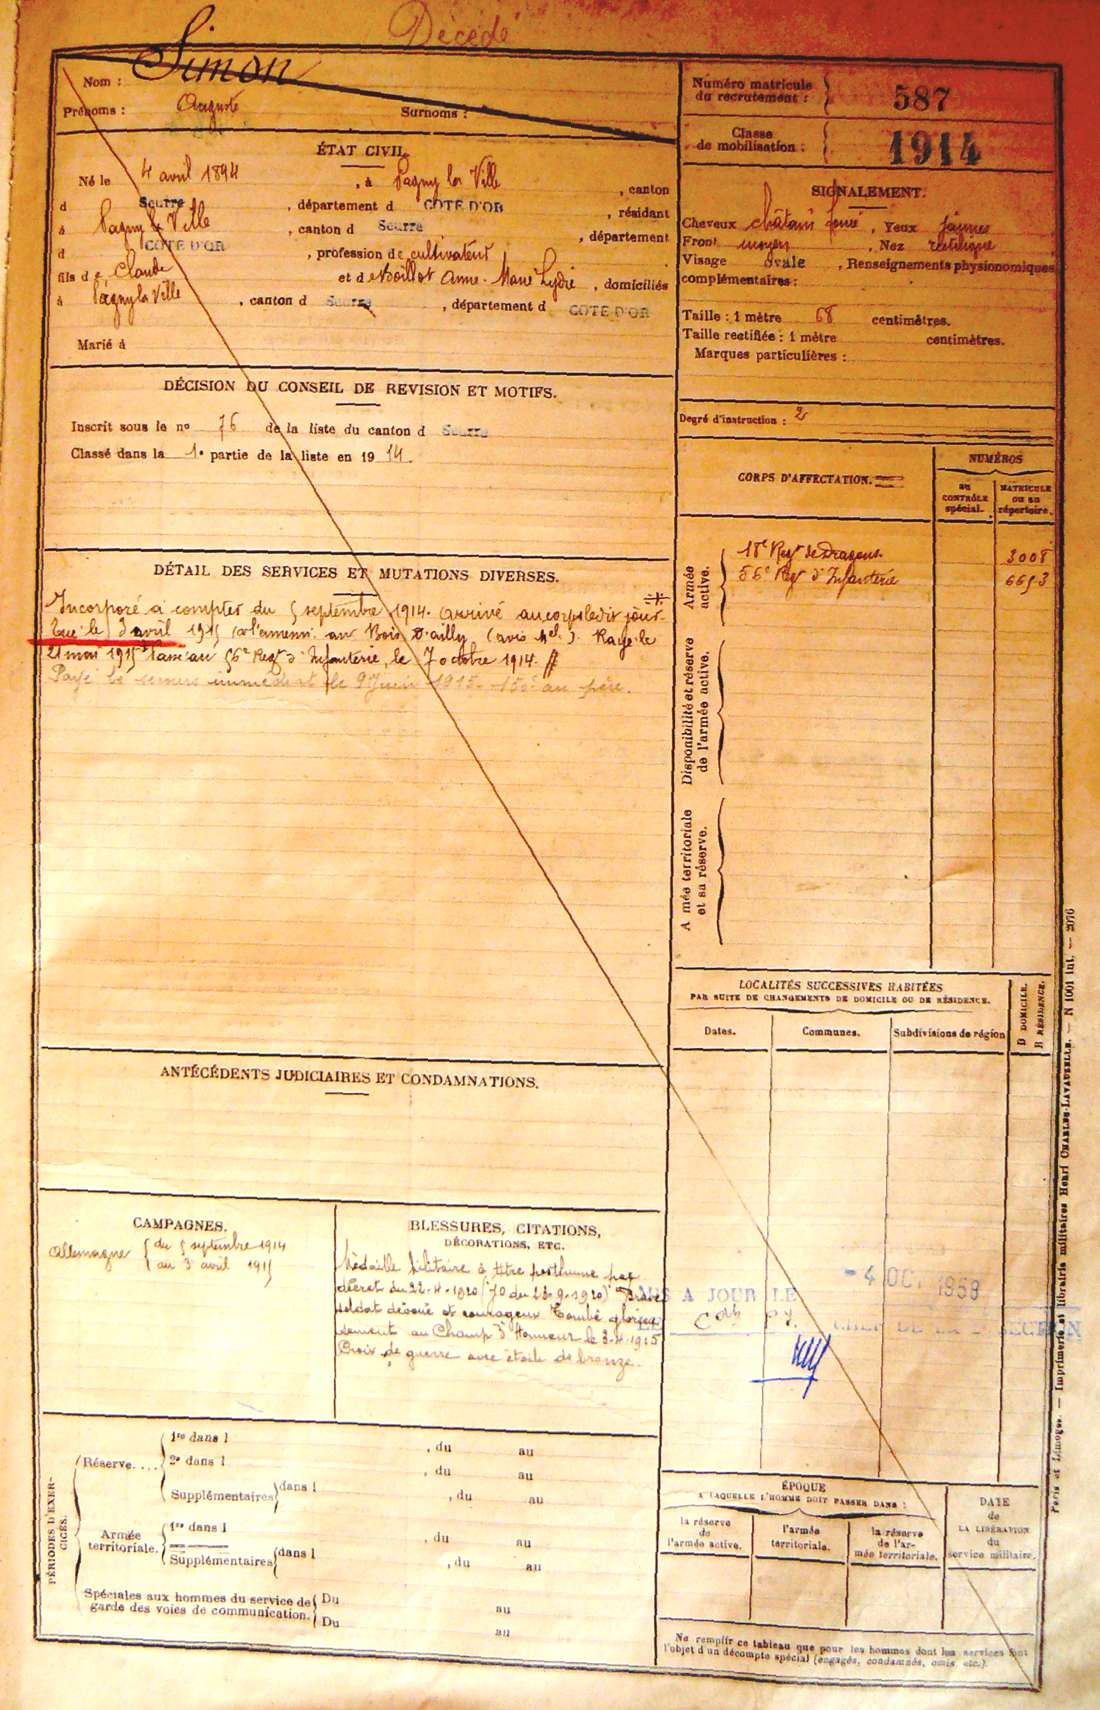 Décédé
Nom : Simon
Prénoms : Auguste Surnoms :
Numéro matricule du recrutement : 587
Classe de mobilisation : 1914
ÉTAT CIVIL.
Né le 4 avril 1894, à Pagny la Ville, canton
d Seurre, département d COTE D'OR, résidant
à Pagny la Ville, canton d Seurre, département
d COTE D'OR, profession de cultivateur
fils de Claude et de Boillot Anne-Marie Lydie, domiciliés
à Pagny la Ville, canton d Seurre, département d COTE D'OR
Marié à
SIGNALEMENT.
Cheveux châtain foncé, Yeux jaunes
Front moyen, Nez rectiligne
Visage ovale, Renseignements physionomiques
complémentaires :
Taille : 1 mètre 68 centimètres.
Taille rectifiée : 1 mètre centimètres.
Marques particulières :
Degré d'instruction : 2
DÉCISION DU CONSEIL DE REVISION ET MOTIFS.
Inscrit sous le nº 76 de la liste du canton d Seurre
Classé dans la 1e partie de la liste en 1914.
CORPS D'AFFECTATION.
NUMÉROS
au CONTRÔLE spécial.
MATRICULE ou au répertoire.
Armée active.
18e Regt de Dragons 3008
56e Regt d'Infanterie 6653
Disponibilité et réserve de l'armée active.
A mée territoriale et sa réserve.
DÉTAIL DES SERVICES ET MUTATIONS DIVERSES.
Incorporé à compter du 5 septembre 1914. arrivé au corps le dit jour.
Tué le 3 avril 1915 à l'ennemi au Bois d'ailly (avis Mel). Rayé le
21 mai 1915 Passé au 56e Regt d'Infanterie, le 7 octobre 1914.
Payé le secours immédiat le 9 Juin 1915. 150f au père.
LOCALITÉS SUCCESSIVES HABITÉES
PAR SUITE DE CHANGEMENTS DE DOMICILE OU DE RÉSIDENCE.
Dates. Communes. Subdivisions de région
D DOMICILE.
R RÉSIDENCE.
ANTÉCÉDENTS JUDICIAIRES ET CONDAMNATIONS.
CAMPAGNES.
Allemagne { du 5 septembre 1914
au 3 avril 1915
BLESSURES, CITATIONS,
DÉCORATIONS, ETC.
Médaille Militaire à titre posthume par
décret du 22-4-1920 (JO du 23-9-1920) Brave
soldat dévoué et courageux Tombé glorieu
sement au Champ d'Honneur le 3-4-1915
Croix de guerre avec étoile de bronze.
MIS A JOUR LE - 4 OCT 1958
CHEF DE LA SECTION
PÉRIODES D'EXERCICES.
Réserve.... 1re dans l , du au
2e dans l , du au
Supplémentaires dans l , du au
Armée territoriale. 1re dans l , du au
Supplémentaires dans l , du au
Spéciales aux hommes du service de garde des voies de communication. Du au
Du au
ÉPOQUE
A LAQUELLE L'HOMME DOIT PASSER DANS :
la réserve de l'armée active.
l'armée territoriale.
la réserve de l'armée territoriale.
DATE de LA LIBÉRATION du service militaire.
Ne remplir ce tableau que pour les hommes dont les services font
l'objet d'un décompte spécial (engagés, condamnés, omis etc.).
Paris et Limoges. — Imprimerie et librairie militaires Henri CHARLES-LAVAUZELLE. — N 1001 int. — 2076